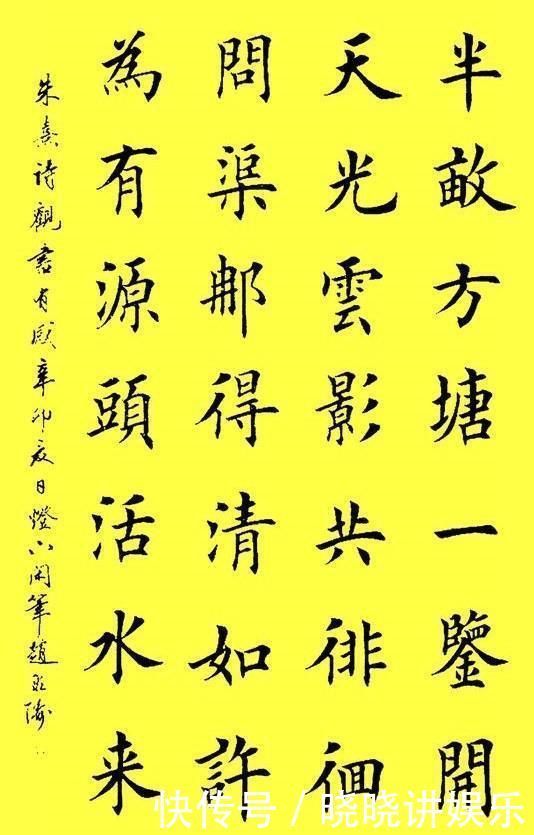 半畝方塘一鑒開
天光雲影共徘徊
問渠那得清如許
為有源頭活水来
朱熹詩觀書有感辛卯夏日燈下閑筆趙
快传号 / 晓晓讲娱乐